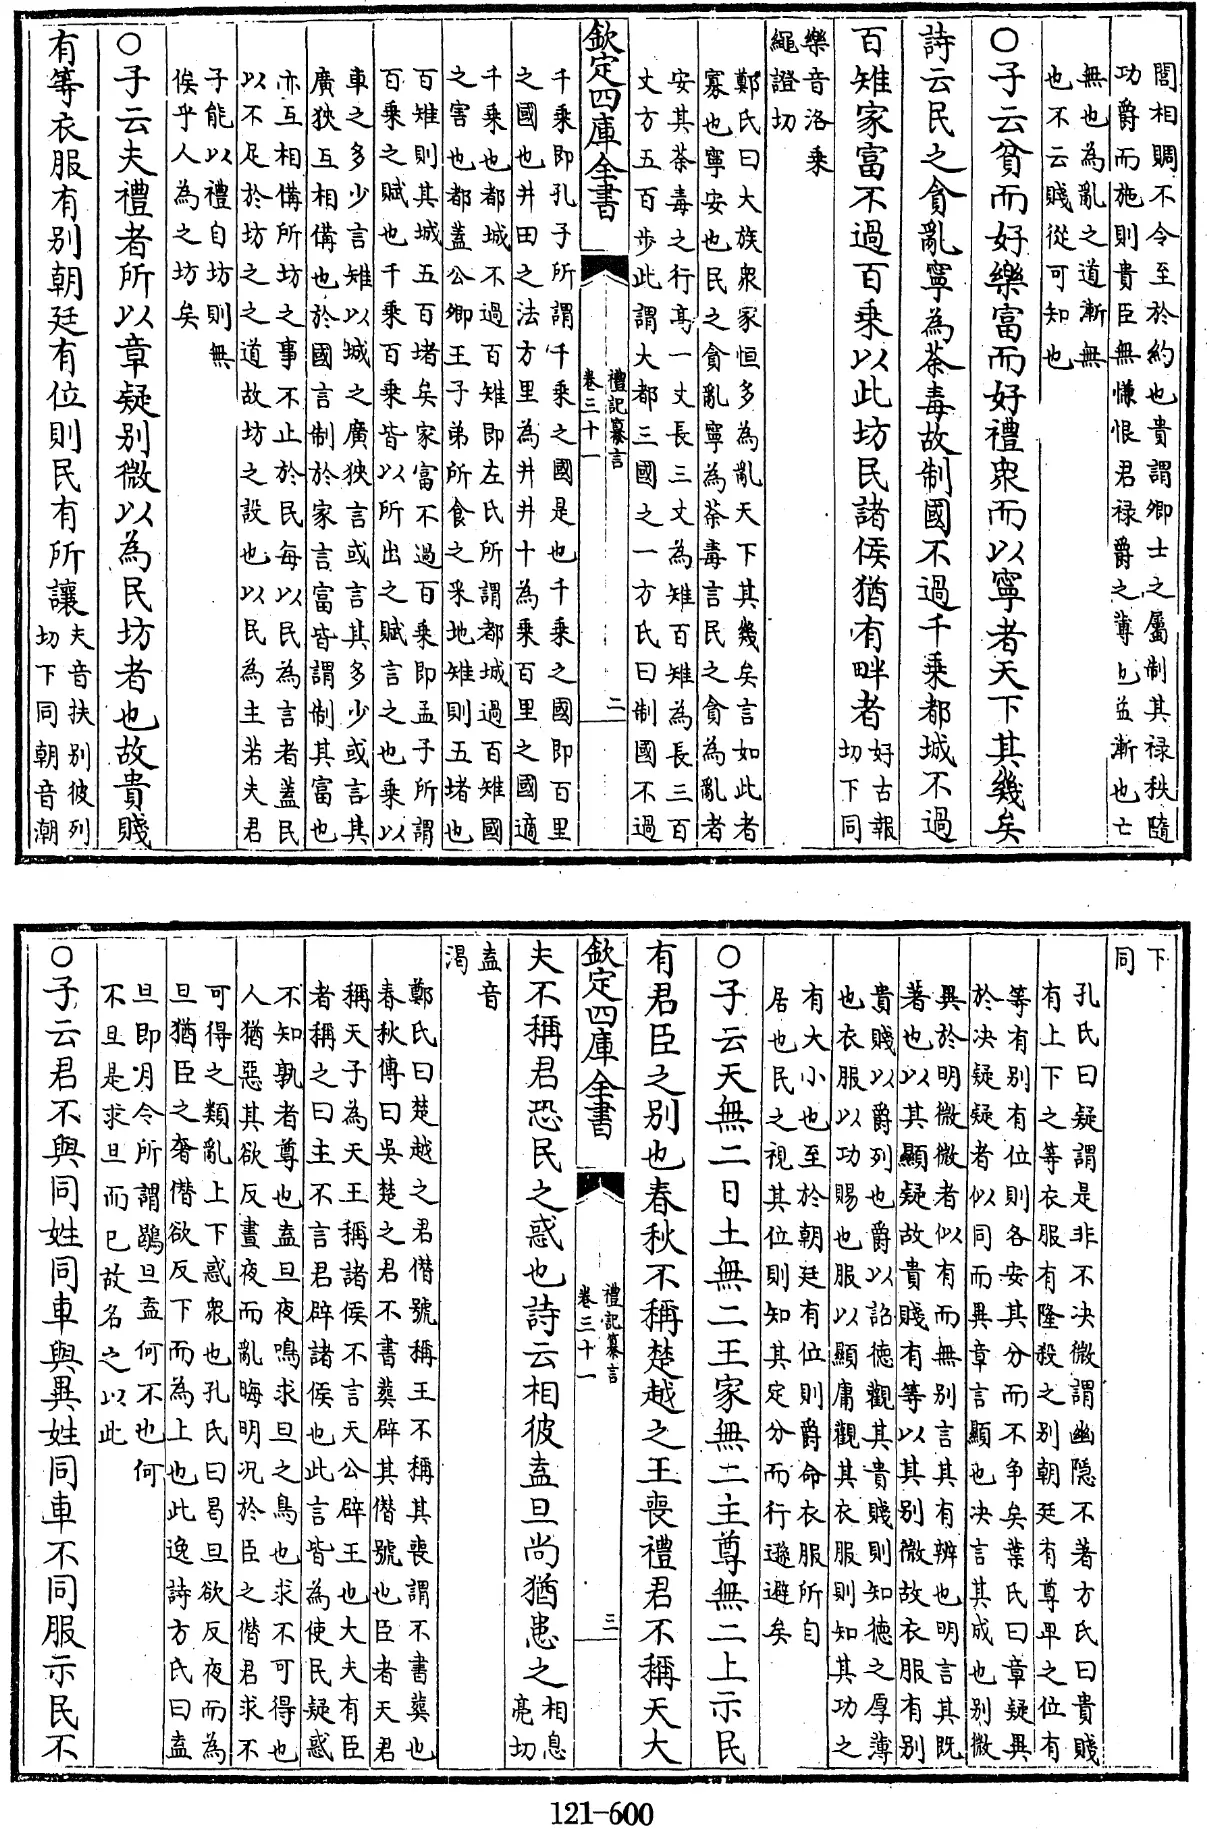 閭相賙不令至於約也貴謂卿士之屬制其禄秩隨
功爵而施則貴臣無慊恨君禄爵之薄也益漸也亡
無也為亂之道漸無
也不云賤從可知也
○子云貧而好樂富而好禮衆而以寧者天下其幾矣
詩云民之貪亂寧為荼毒故制國不過千乘都城不過
百雉家富不過百乘以此坊民諸侯猶有畔者
好古報
切下同
樂音洛乘
繩證切
鄭氏曰大族衆家恒多為亂天下其幾矣言如此者
寡也寧安也民之貪亂寧為荼毒言民之貪為亂者
安其荼毒之行髙一丈長三丈為雉百雉為長三百
丈方五百步此謂大都三國之一方氏曰制國不過
欽定四庫全書
禮記纂言
卷三十一
二
千乘即孔子所謂千乘之國是也千乘之國即百里
之國也井田之法方里為井井十為乘百里之國適
千乘也都城不過百雉即左氏所謂都城過百雉國
之害也都蓋公卿王子弟所食之采地雉則五堵也
百雉則其城五百堵矣家富不過百乘即孟子所謂
百乘之賦也千乘百乘皆以所出之賦言之也乘以
車之多少言雉以城之廣狹言或言其多少或言其
廣狹互相備也於國言制於家言富皆謂制其富也
亦互相備所坊之事不止於民每以民為言者蓋民
以不足於坊之之道故坊之設也以民為主若夫君
子能以禮自坊則無
俟乎人為之坊矣
○子云夫禮者所以章疑别微以為民坊者也故貴賤
有等衣服有别朝廷有位則民有所讓
夫音扶别彼列
切下同朝音潮
下
同
孔氏曰疑謂是非不决微謂幽隠不著方氏曰貴賤
有上下之等衣服有隆殺之别朝廷有尊卑之位有
等有别有位則各安其分而不争矣葉氏曰章疑異
於决疑疑者似同而異章言顯也决言其成也别微
異於明微微者似有而無别言其有辨也明言其既
著也以其顯疑故貴賤有等以其别微故衣服有别
貴賤以爵列也爵以詔徳觀其貴賤則知徳之厚薄
也衣服以功賜也服以顯庸觀其衣服則知其功之
有大小也至於朝廷有位則爵命衣服所自
居也民之視其位則知其定分而行遜避矣
○子云天無二日土無二王家無二主尊無二上示民
有君臣之别也春秋不稱楚越之王喪禮君不稱天大
欽定四庫全書
禮記纂言
卷三十一
三
夫不稱君恐民之惑也詩云相彼盍旦尚猶患之
相息
亮切
盍音
渴
鄭氏曰楚越之君僭號稱王不稱其喪謂不書葬也
春秋傳曰吳楚之君不書葬辟其僭號也臣者天君
稱天子為天王稱諸侯不言天公辟王也大夫有臣
者稱之曰主不言君辟諸侯也此言皆為使民疑惑
不知孰者尊也盍旦夜鳴求旦之鳥也求不可得也
人猶惡其欲反晝夜而亂晦明况於臣之僭君求不
可得之類亂上下惑衆也孔氏曰曷旦欲反夜而為
旦猶臣之奢僭欲反下而為上也此逸詩方氏曰盍
旦即月令所謂鶡旦盍何不也何
不旦是求旦而已故名之以此
○子云君不與同姓同車與異姓同車不同服示民不
121-600